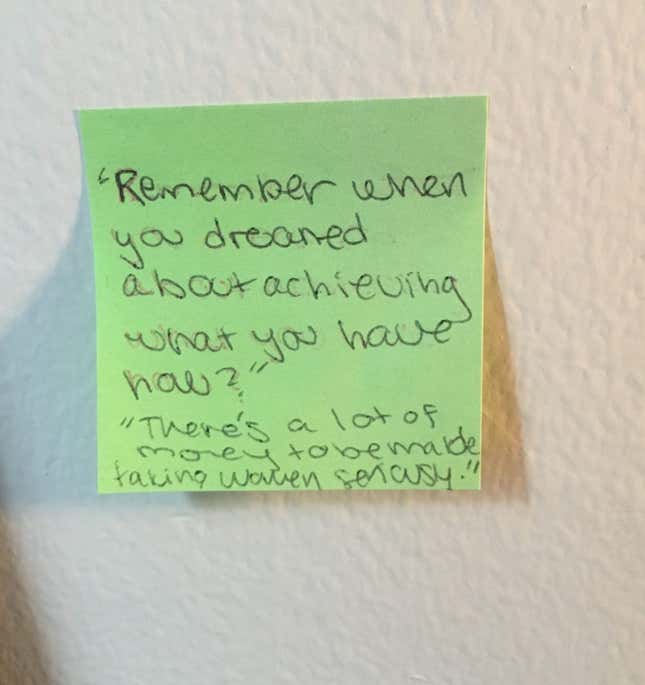 "Remember when
you dreamed
about achieving
what you have
now?"
"There's a lot of
money to be made
taking women seriously."